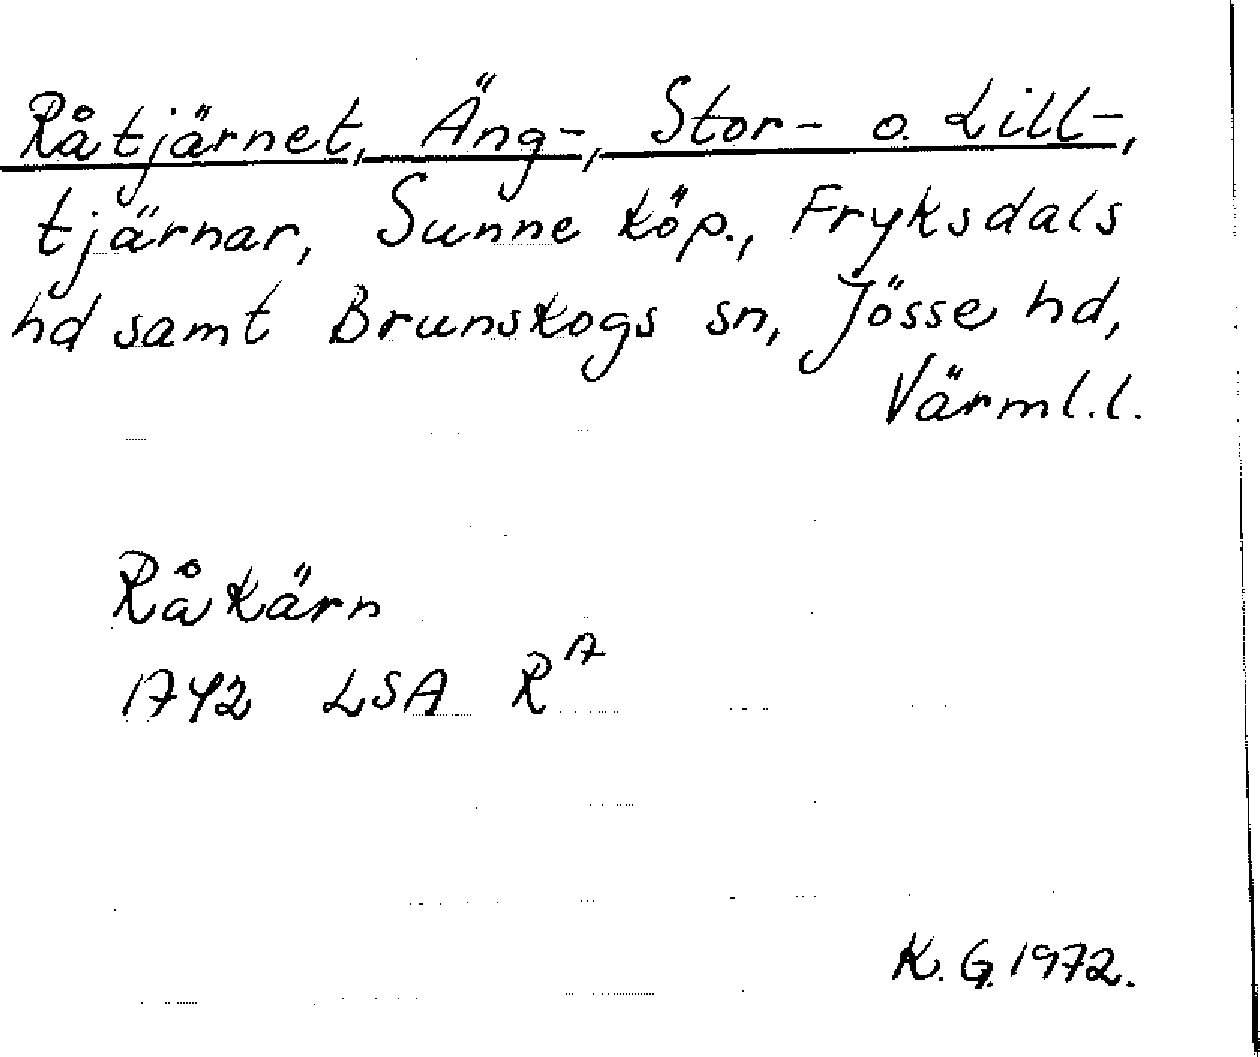 Råtjärnet, Äng-, Stor- o. Lill-,
tjärnar, Sunne köp., Fryksdals
hd samt Brunskogs sn, Jösse hd,
Värml.l.
Råkärn
1742 LSA R 17
K.G. 1972.